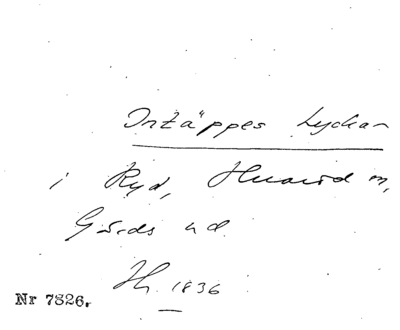 Intäppes Lyckan
i Ryd, Hvarid m,
Gärds hd.
Hh. 1836
Nr 7826.